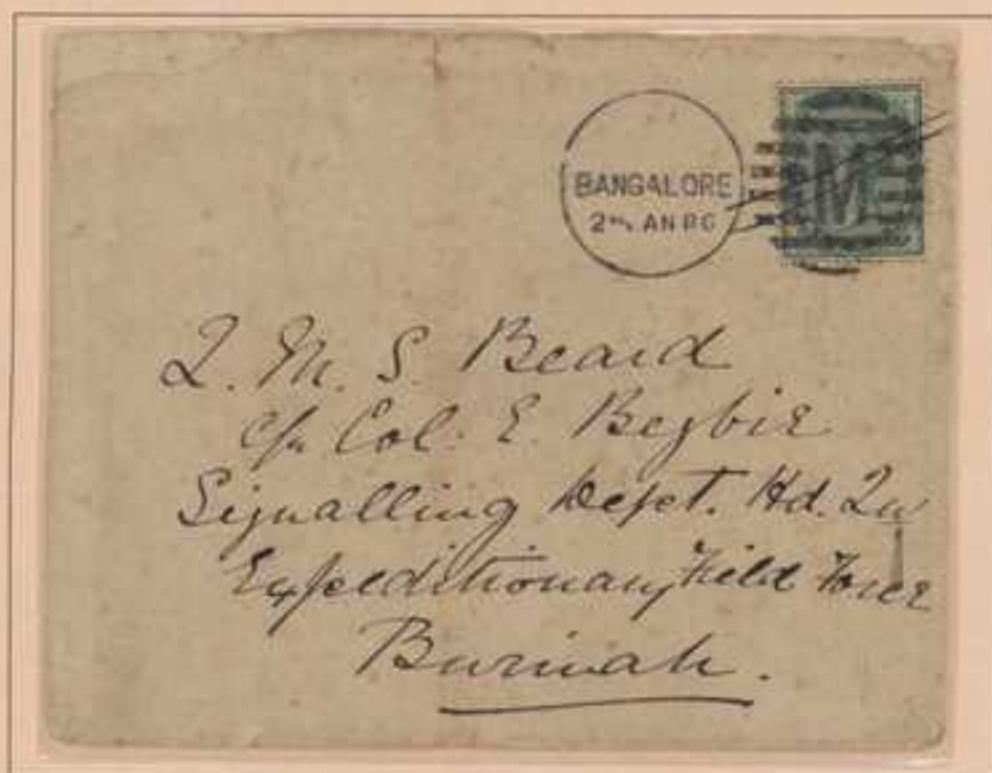 BANGALORE
M
Q. M. S. Beard
c/o Col. E. Begbie
Signalling Dept. Hd. Qu
Expeditionary Field Force
Burmah.